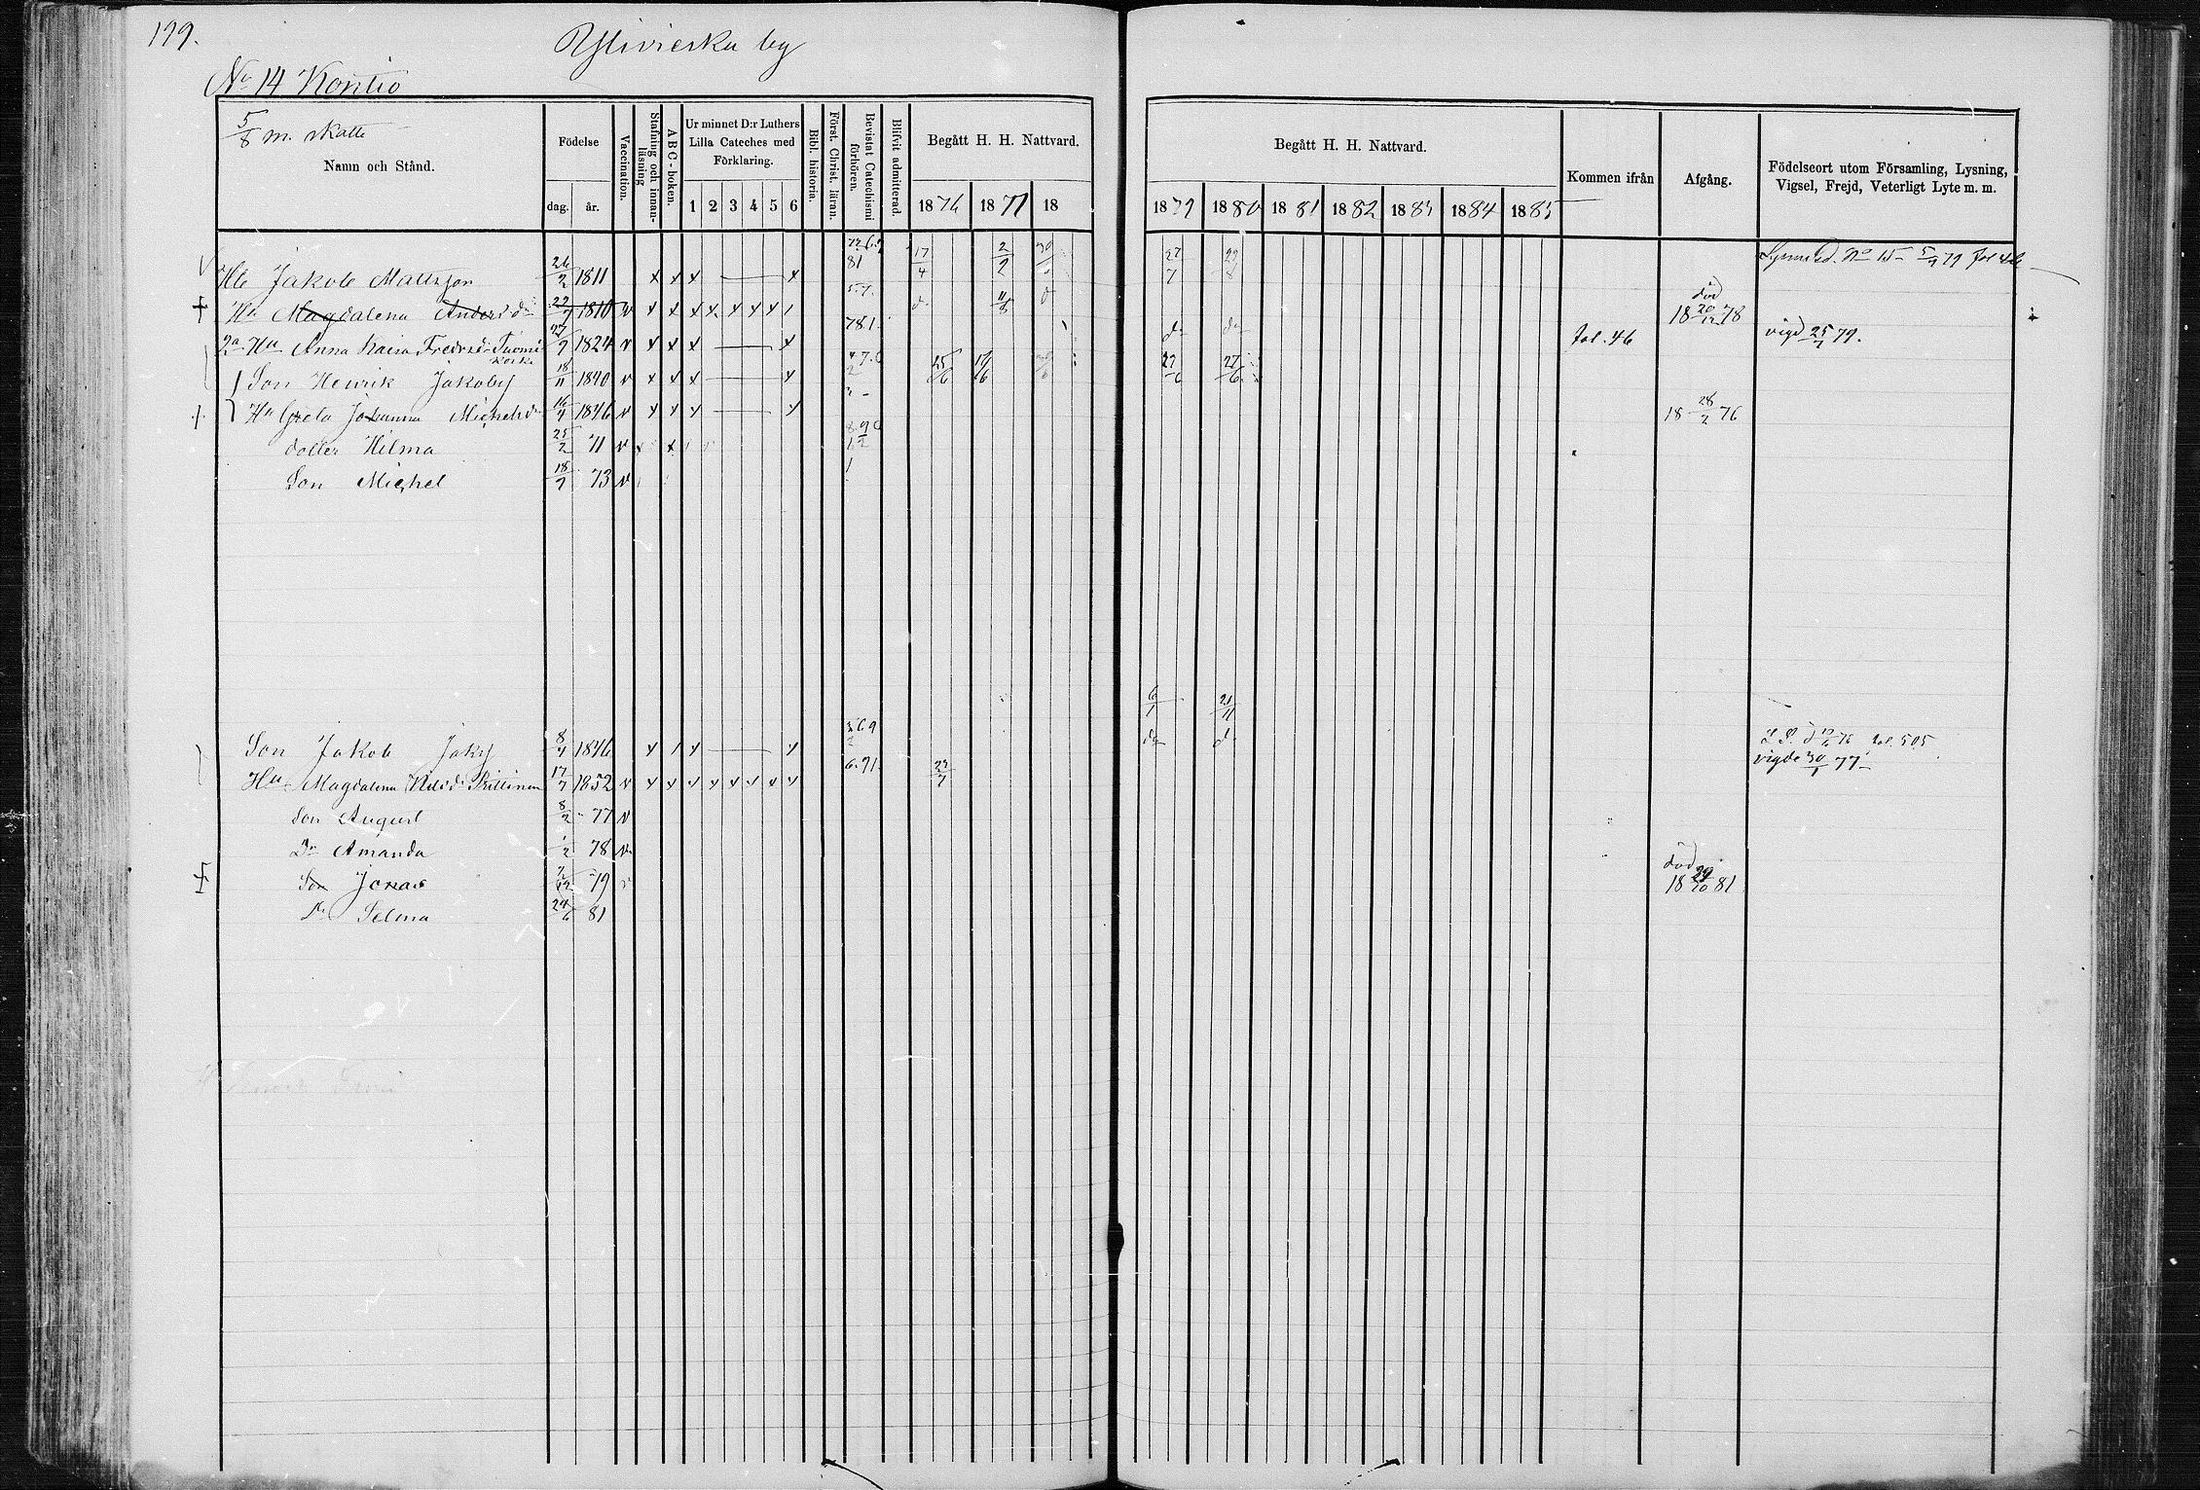 199.
Ylivieska by
No 14 Kontio
5/8 m. skatte
Namn och Stånd.
Födelse
dag.
år.
Vaccination.
Stafning och innan-läsning
ABC-boken.
Ur minnet D:r Luthers
Lilla Cateches med
Förklaring.
1 2 3 4 5 6
Bibl. historia.
Först. Christ. läran.
Bevistat Catechismi förhören.
Blifvit admitterad.
Begått H. H. Nattvard.
1876 1877 18
Begått H. H. Nattvard.
1879 1880 1881 1882 1883 1884 1885
Kommen ifrån
Afgång.
Födelseort utom Församling, Lysning,
Vigsel, Frejd, Veterligt Lyte m. m.
Jakob Mattsson 26/2 1811 81 17/4 2/2
Hu Magdalena Anders dr 1810 död 18 20/12 78
2a Hu Anna Kaisa Fredrsdr Tuomikoski 27/9 1824 fol. 46 vigd 25/7 79.
Son Henrik Jakobs 18/11 1840 25/6 27/6
Hu Greta Johanna Michelsdr 16/4 1846 18 28/2 76
dotter Hilma 25/2 71
Son Michel 18/7 73
Son Jakob Jakss 8/4 1846 fol. 505
Hu Magdalena Prittinen 17/7 1852 vigde 30/1 77
Son August 8/2 77
Dr Amanda 1/2 78
Son Jonas 79 död 18 29/10 81
Dr Selma 24/6 81